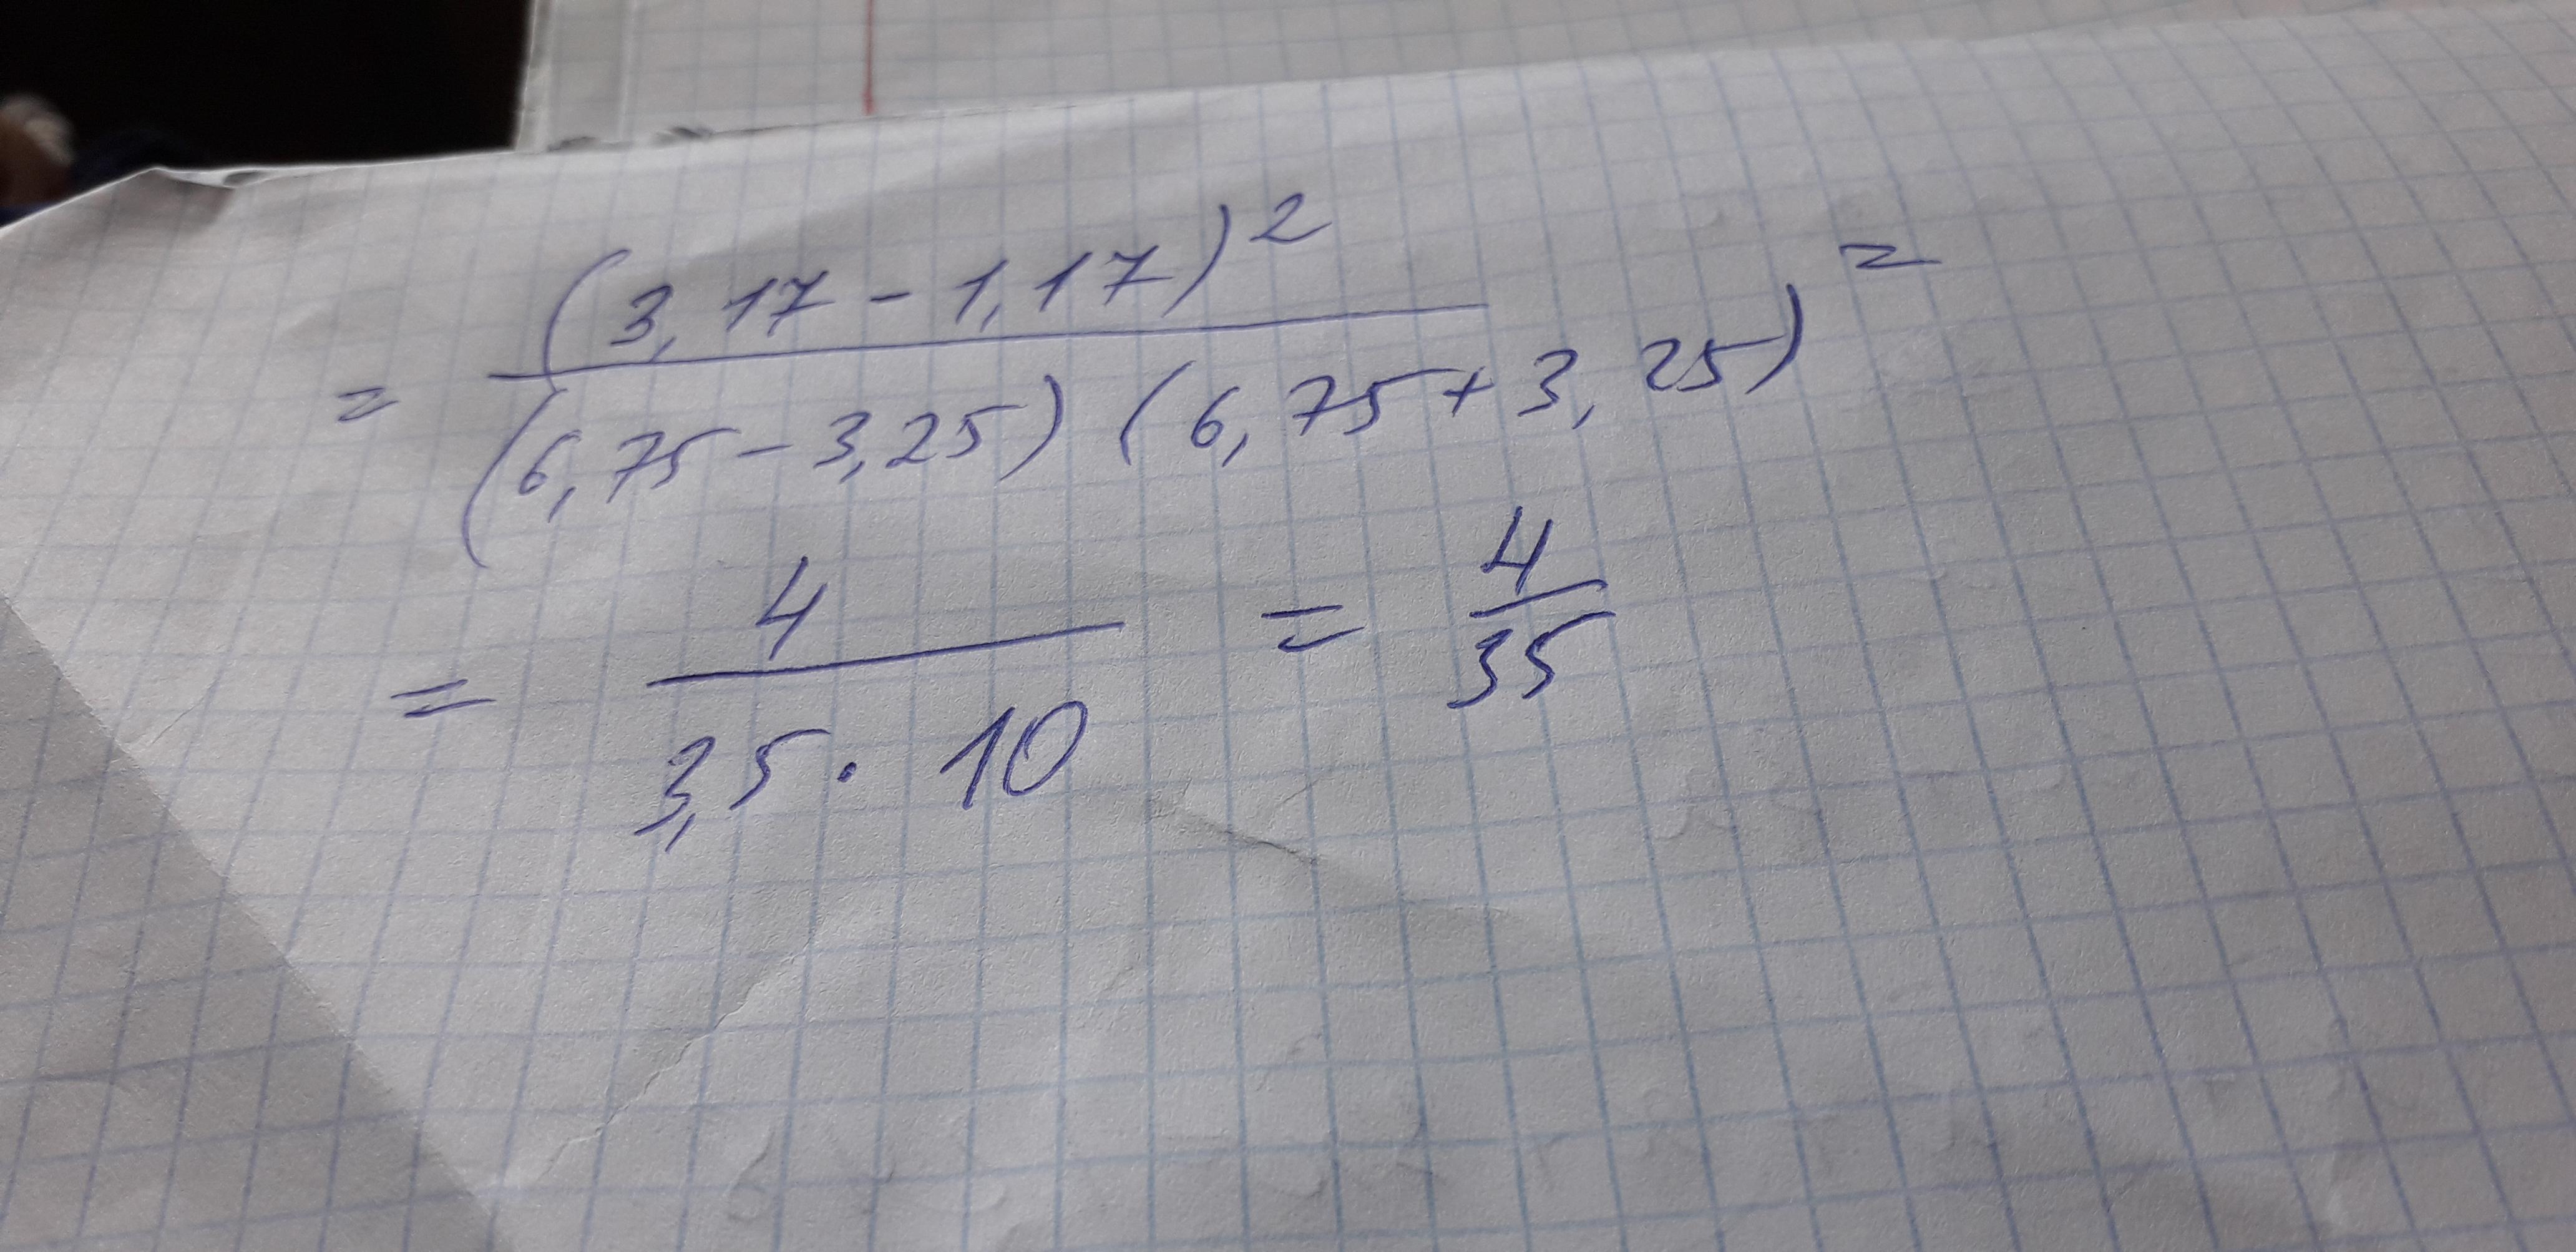 = (3,17 - 1,17)² / (6,75 - 3,25) (6,75 + 3,25) =
= 4 / 3,5 · 10 = 4 / 35